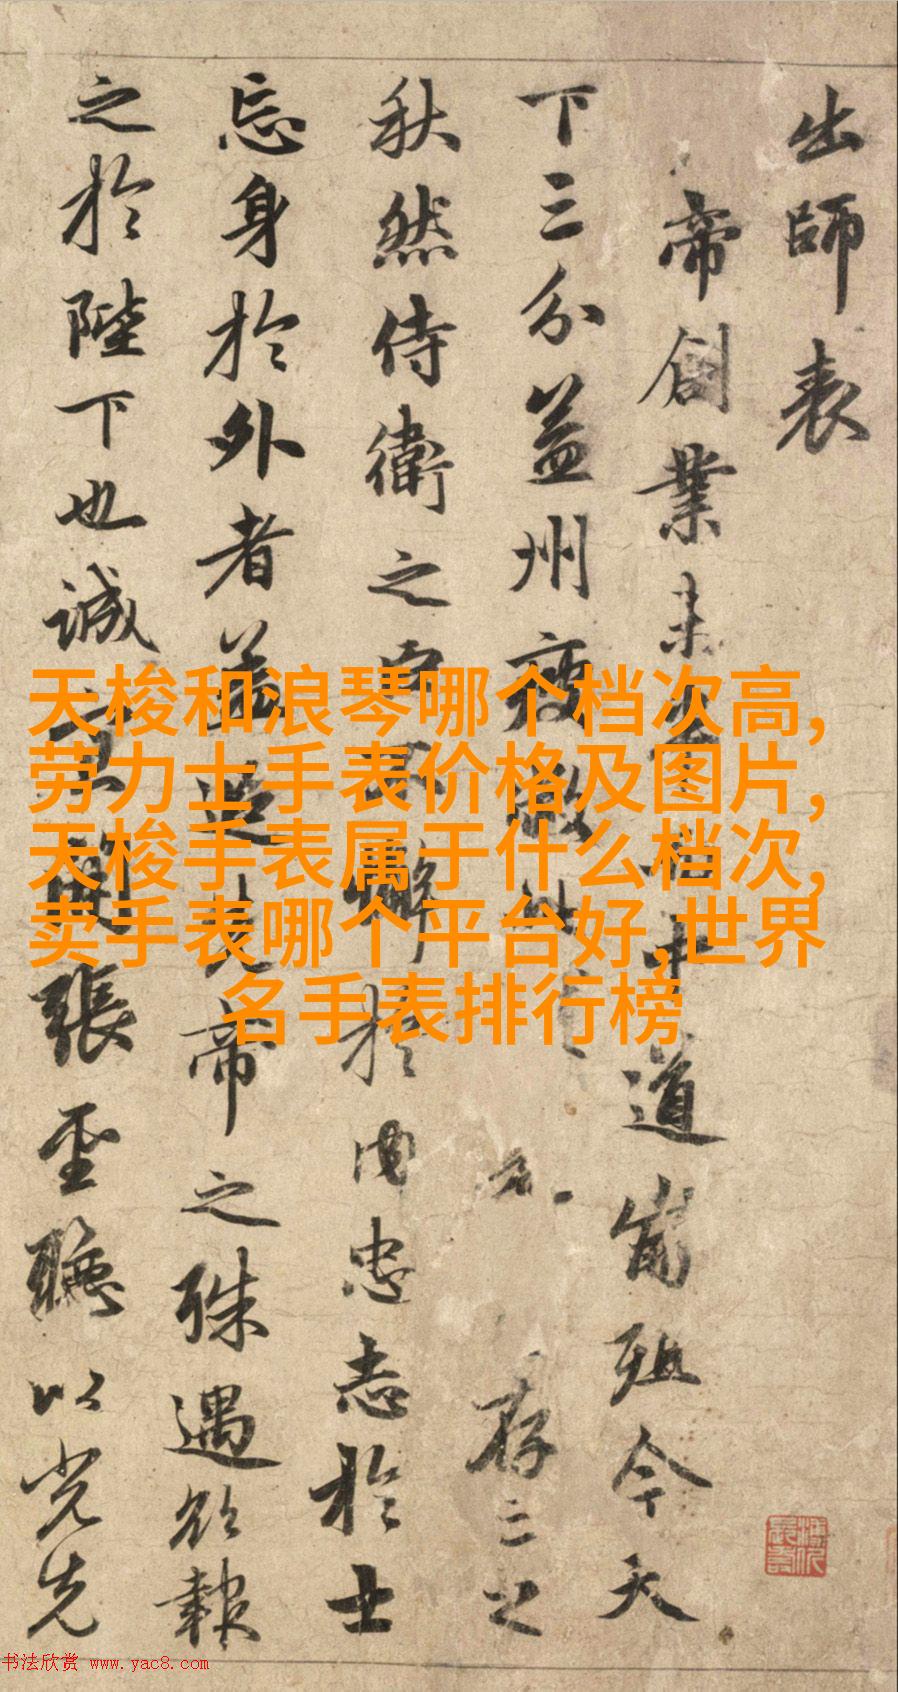 出師表
帝創業未中道崩殂今天
下三分益州疲敝此存亡之
秋然侍衛之臣不懈於内忠志於士
忘身於外者蓋追先帝之殊遇欲報
之於陛下也誠宜開張聖聽以光先
天梭和浪琴哪个档次高,
劳力士手表价格及图片,
天梭手表属于什么档次,
卖手表哪个平台好,世界
名手表排行榜
书法欣赏 www.yac8.com